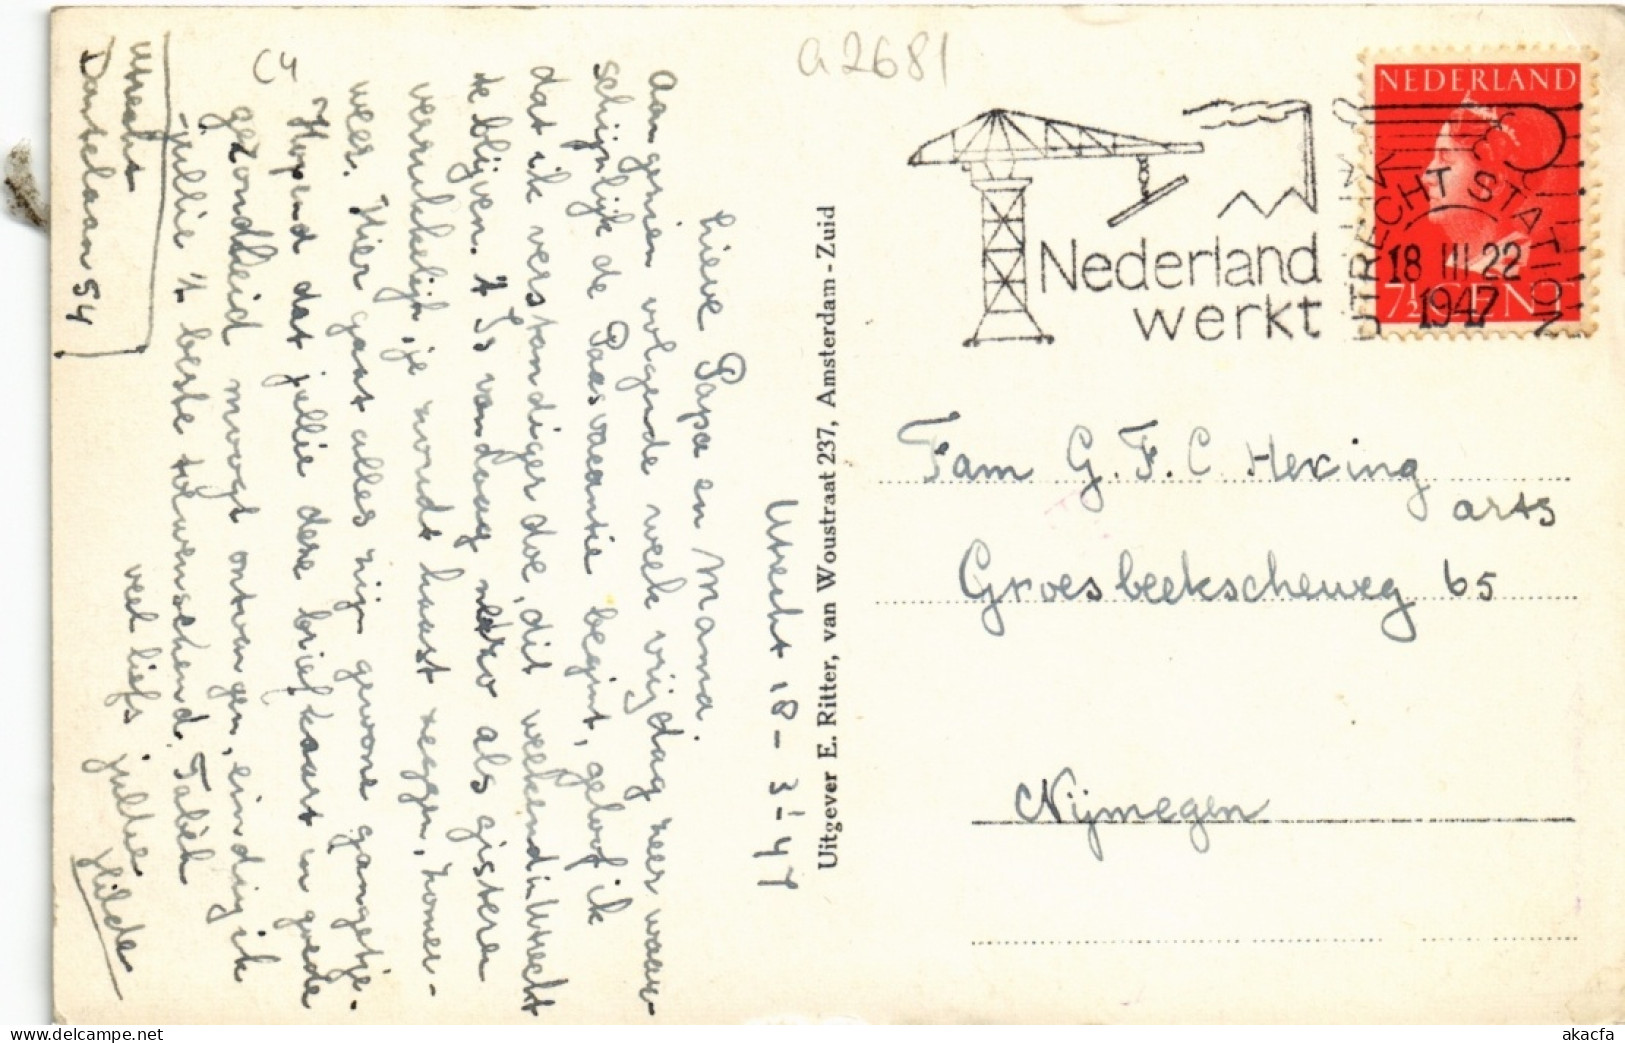 a2681
C4
Utrecht
Dantelaan 54
Utrecht, 18-3-'47
Lieve Papa en Mama.
Aangezien volgende week vrijdag zeer waar-
schijnlijk de Paasvacantie begint, geloof ik
dat ik verstandiger doe, dit weekend in Utrecht
te blijven. 't Is vandaag net zo als gisteren
verrukkelijk, je zoudt haast zeggen, zomer-
weer. Hier gaat alles zijn gewone gangetje.
Hopend dat jullie deze briefkaart in goede
gezondheid moogt ontvangen, eindig ik
jullie 't beste toewenschend. Tabéh
veel liefs jullie
Hilde
Uitgever E. Ritter, van Woustraat 237, Amsterdam-Zuid
Nederland
werkt
NEDERLAND
UTRECHT STATION
18 III 22
1947
7½ CENT
Fam G. F. C. Hering
arts
Groesbeekscheweg 65
Nijmegen
https://www.delcampe.net
akacfa